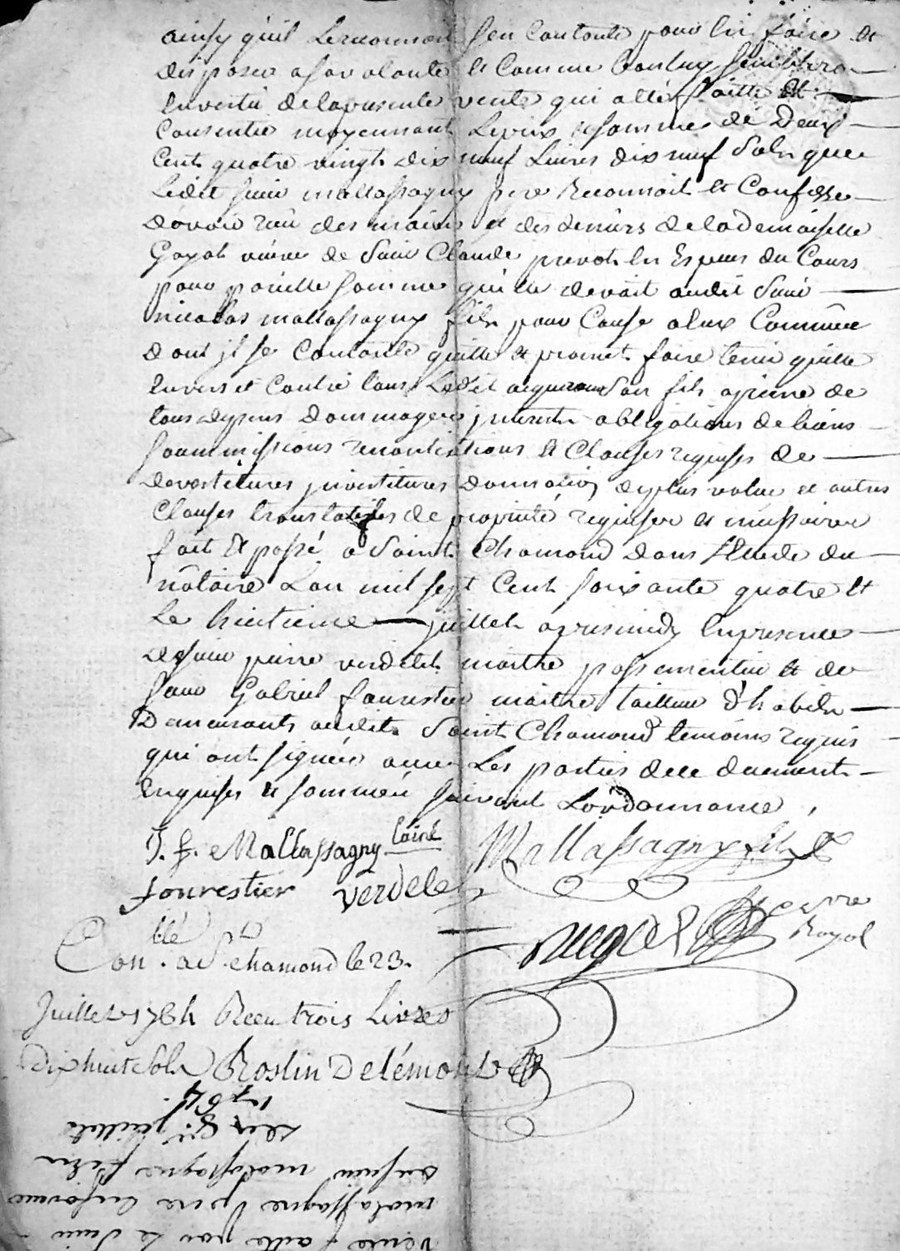 ainsy quil Lereconnoit sen Contente pour En faire et
disposer a sa volonté Et Comme
En vertu de la presente vente qui a été faitte Et
Consentie moyennant Le prix et somme de Deux
Cent quatre vingt dix neuf Livres dix neuf Sols que
Ledit Sieur mallassagny pere Reconnoit Et Confesse
davoir reçu des mains et des deniers de la demoiselle
Goyot veuve de Sieur Claude prevot En Especes du Cours
pour pareille somme quelle devoit audit Sieur
nicolas mallassagny fils pour Cause a Eux Connüe
dont jl se Contente quitte et promet faire tenir quitte
Envers et Contre tous Ledit acquereur Son fils a peine de
tous depens Dommages jnterets obligations de biens
soummissions renonciations Et Clauses requises de
devestitures jnvestitures Donnation de plus value et autres
Clauses translatifes de proprieté requises et necessaires
fait Et passé a Saint Chamond dans l'Etude du
nôtaire L'an mil sept Cent soixante quatre Et
Le huitieme juillet apres midy En presence
de Sieur pierre verdelet maitre passementier Et de
Sieur Gabriel fourestier maitre tailleur d'habits
Demeurants audit Saint Chamond temoins requis
qui ont signés avec Les parties de ce duement
Enquises et sommées suivant Lordonnance
J. B. Mallassagny Lainé Mallassagny fils
fourestier verdelet
Nre
Royal
Con.blé a St. chamond le 23.
Juillet 1764 Recu trois Livres
Dixhuit Sols Roslin Delémont
vente faitte par Le Sieur
malassagne pere En faveur
du Sieur malassagne fils
du 8e. juillet
1764.